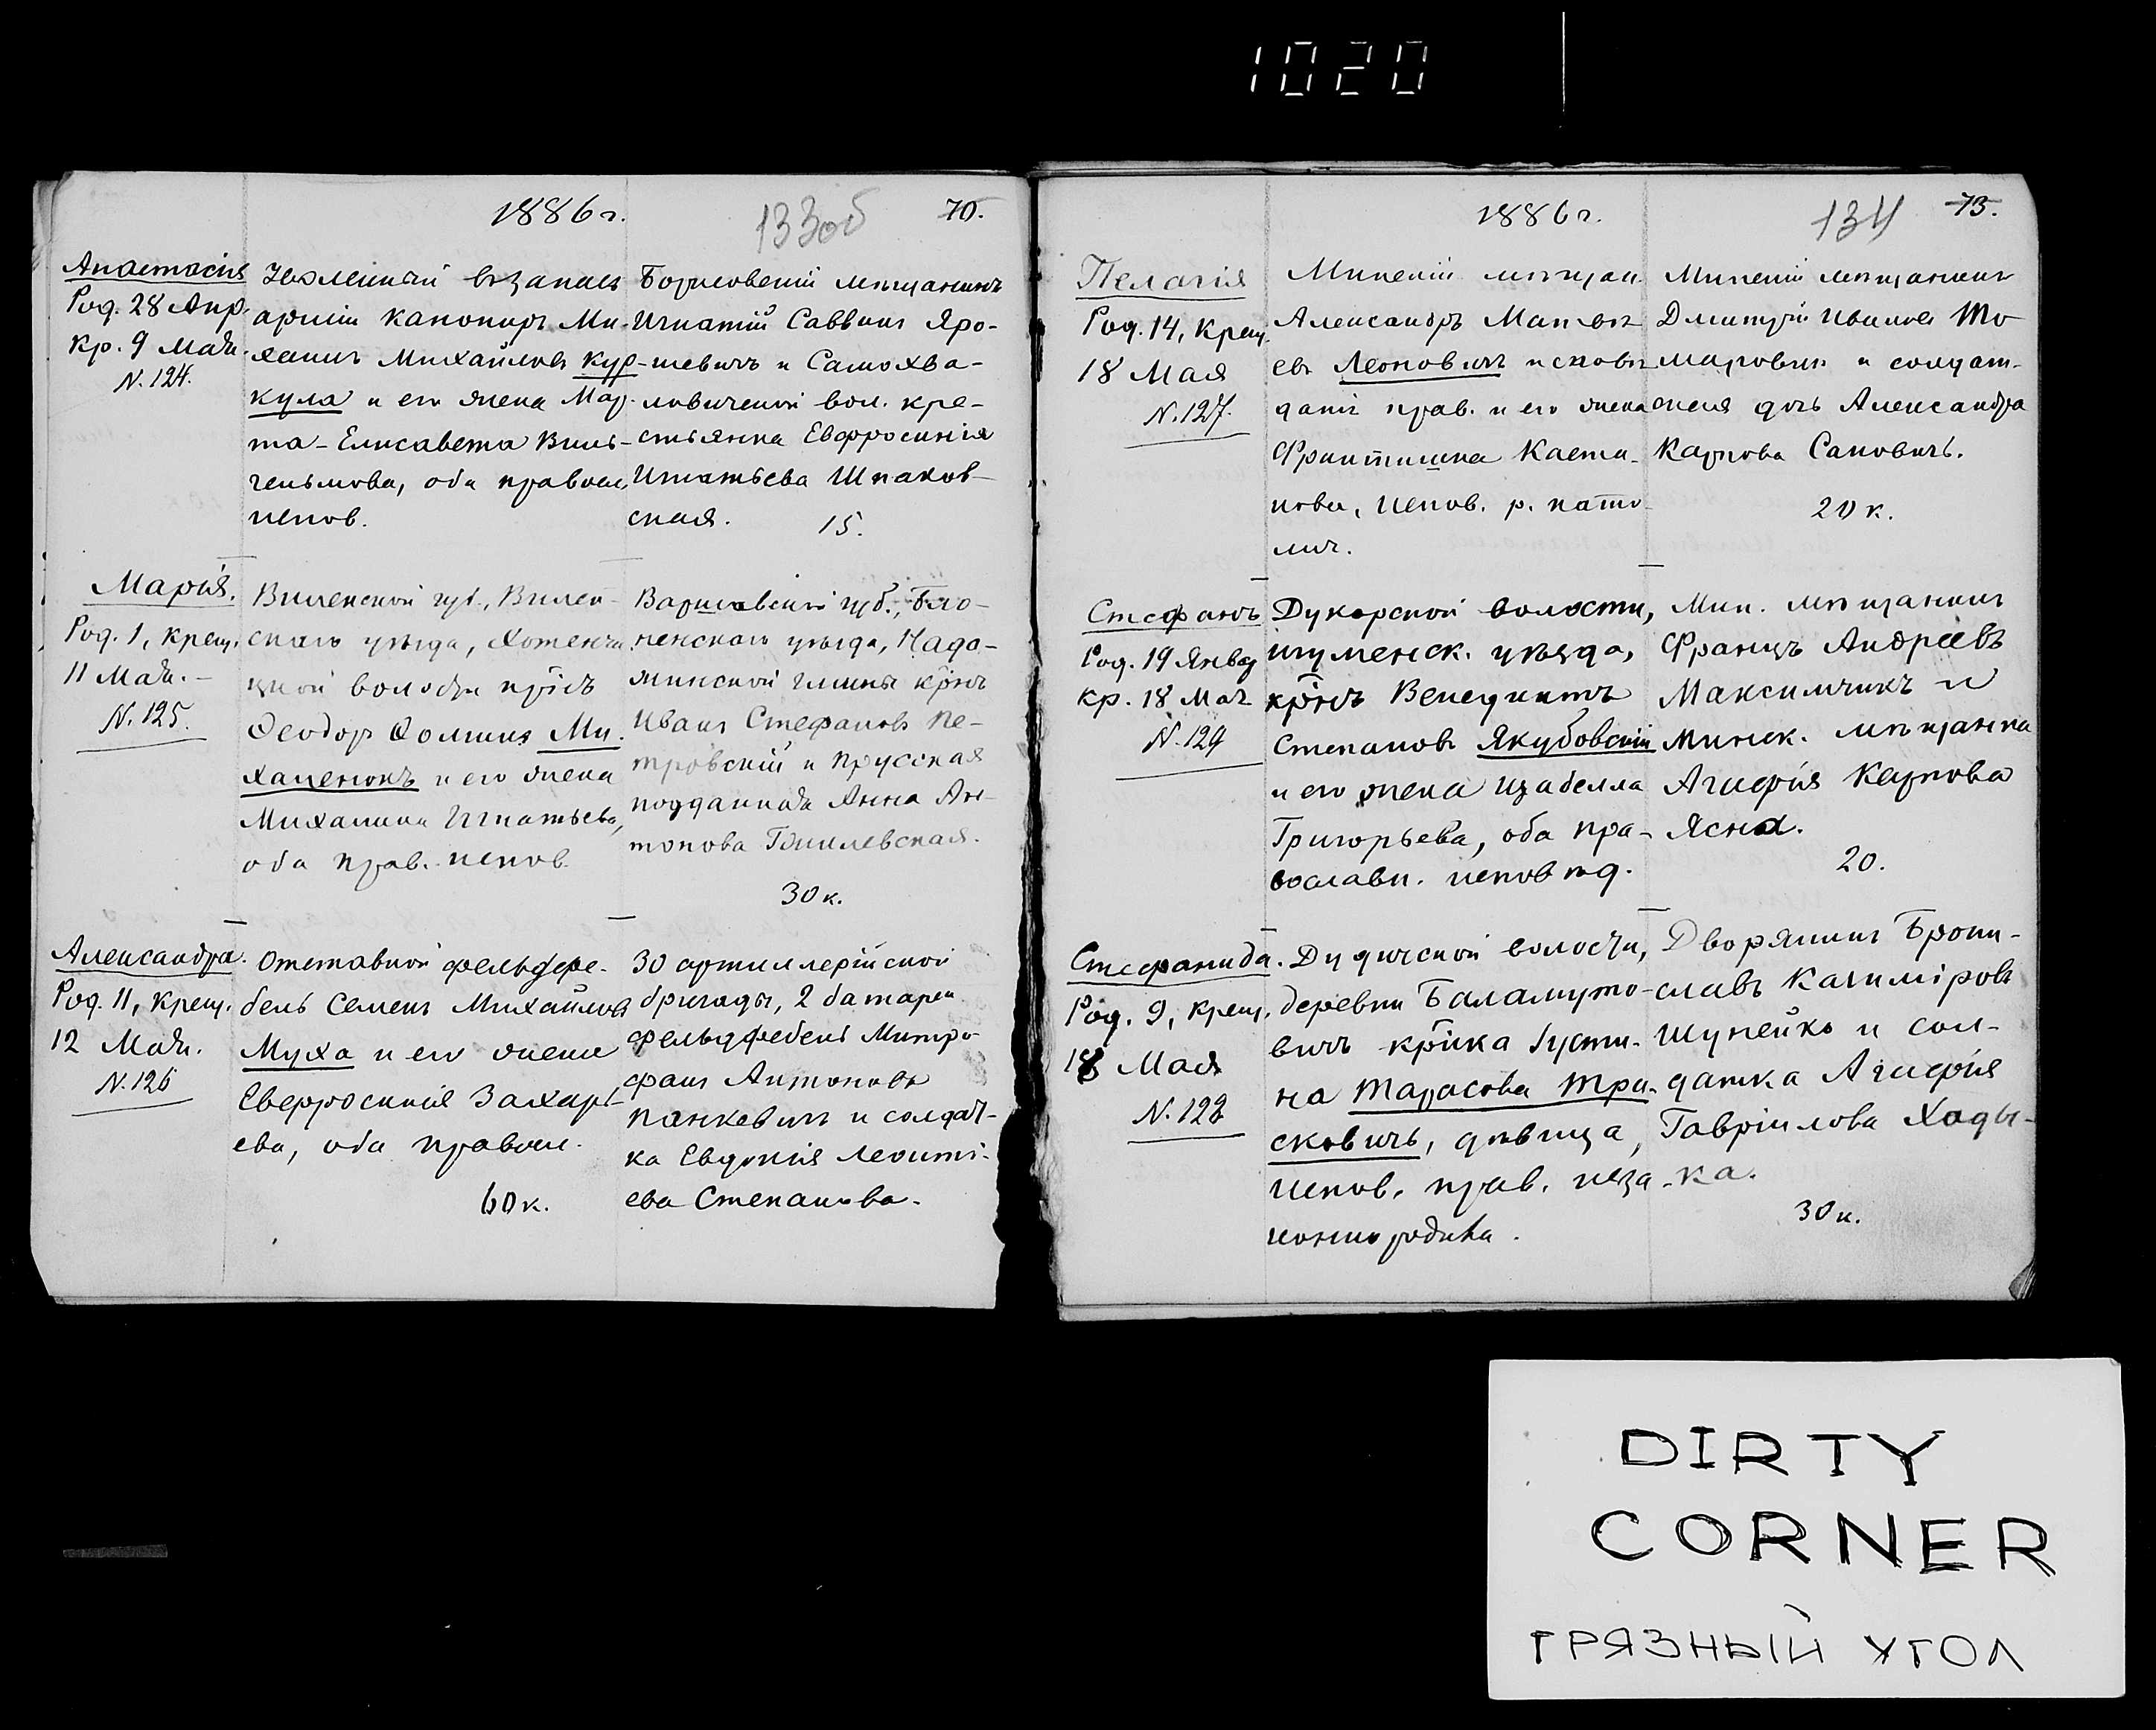 1020
1886 г.
133 об
70.
Анастасія
Род. 28 Апр.
кр. 9 Мая.
N. 124.
Уволенный въ запасъ
арміи канониръ Ми-
хаилъ Михайловъ Кур-
кула и его жена Мар-
та-Елисавета Виль-
гельмова, оба правосл.
испов.
Борисовскій мѣщанинъ
Игнатій Саввинъ Яро-
шевичъ и Самохва-
ловичской вол. кре-
стьянка Евфросинія
Игнатьева Шпаков-
ская. 15.
Марія.
Род. 1, крещ.
11 Мая.
N. 125.
Виленской губ., Вилен-
скаго уѣзда, Хотенчи-
цкой волости кр-нъ
Ѳеодоръ Ѳоминъ Ми-
халенокъ и его жена
Михалина Игнатьева,
оба прав. испов.
Варшавской губ., Бло-
ненскаго уѣзда, Нада-
жинской гмины кр-нъ
Иванъ Стефановъ Пе-
тровскій и Прусская
подданная Анна Ан-
тонова
30 к.
Александра.
Род. 11, крещ.
12 Мая.
N. 126
Отставной фельдфе-
бель Семенъ Михайловъ
Муха и его жена
Евфросинія Захарь-
ева, оба правосл.
60 к.
30 артиллерійской
бригады, 2 батареи
фельдфебель Митро-
фанъ Антоновъ
Панкевичъ и солдат-
ка Евдокія Леонті-
ева Степанова.
1886 г.
134
73.
Пелагія
Род. 14, крещ.
18 Мая
N. 127.
Минскій мѣщан.
Александръ Матвѣ-
евъ Леоновичъ исповѣ-
данія прав. и его жена
Франтишка Касти-
нова, испов. р. като-
лич.
Минскій мѣщанинъ
Дмитрій Ивановъ То-
маровичъ и солдат-
ская дочь Александра
Карпова Сановичъ.
20 к.
Стефанъ
Род. 19 Январ
кр. 18 Мая
N. 129
Дукорской волости,
игуменск. уѣзда,
кр-нъ Венедиктъ
Степановъ Якубовскій
и его жена Изабелла
Григорьева, оба пра-
вославн. исповѣд.
Мин. мѣщанинъ
Францъ Андреевъ
Максимчикъ и
Минск. мѣщанка
Агафія Карпова
Ясна.
20.
Стефанида.
Род. 9, крещ.
18 Мая
N. 128
Дудичской волости,
деревни Баламуто-
вичъ кр-нка Іусти-
на Тарасова Тра-
сковичъ, дѣвица,
испов. прав. неза-
конно родила.
Дворянинъ Брони-
славъ Казиміровъ
Шупейко и сол-
датка Агафія
Гавріилова Хады-
ка.
30 к.
DIRTY
CORNER
ГРЯЗНЫЙ УГОЛ